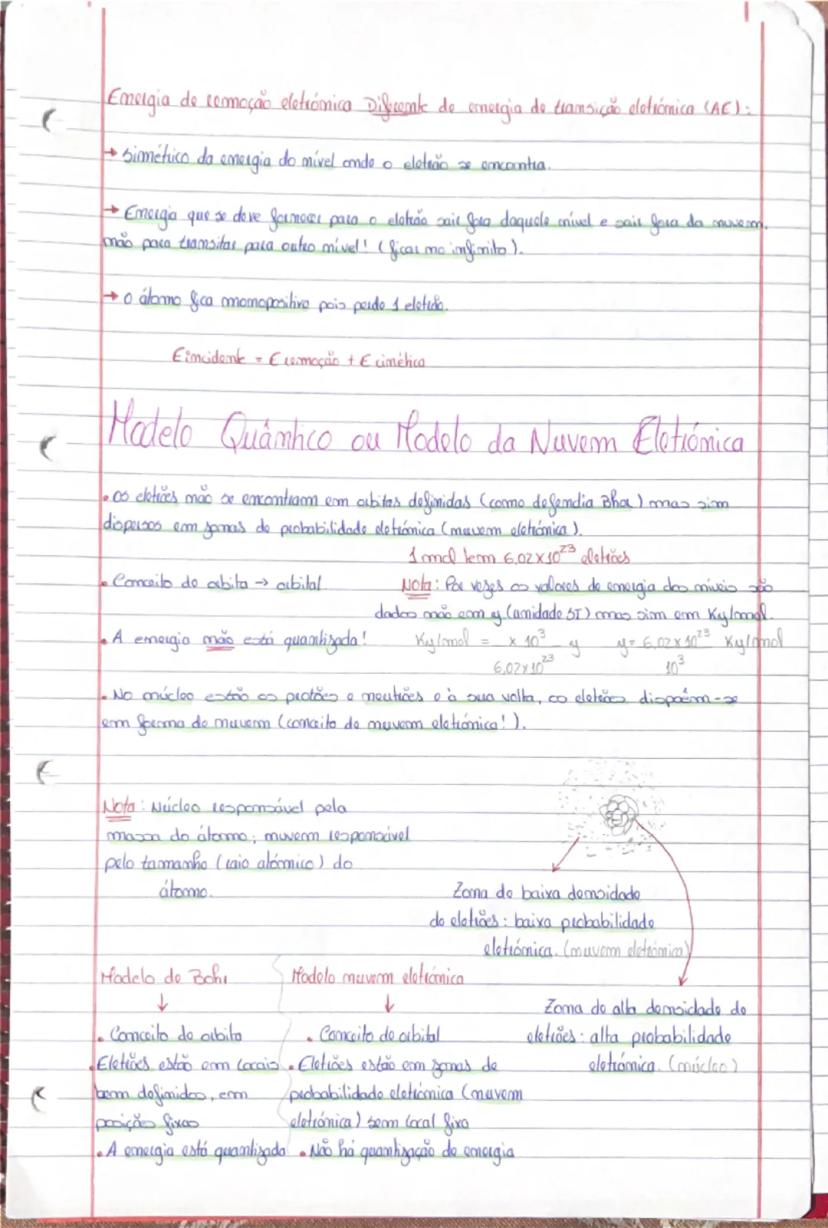 Energia de remoção eletrónica Diferente de energia de transição eletrónica (ΔE):
→ Simétrico da energia do nível onde o eletrão se encontra.
→ Energia que se deve fornecer para o eletrão sair fora daquele nível e sair fora da nuvem,
não para transitar para outro nível! (ficar no infinito).
→ O átomo fica monopositivo pois perde 1 eletrão.
Eincidente = Eremoção + Ecinética
Modelo Quântico ou Modelo da Nuvem Eletrónica
• Os eletrões não se encontram em orbitas definidas (como defendia Bhor) mas sim
dispersos em zonas de probabilidade eletrónica (nuvem eletrónica).
1 mol tem 6,02×10²³ eletrões
• Conceito de orbita → orbital.
Nota: Por vezes os valores de energia dos níveis são
dados não em J (unidade SI) mas sim em KJ/mol.
• A energia não está quantizada!
KJ/mol = × 10³ / 6,02×10²³ J
J = 6,02×10²³ / 10³ KJ/mol
• No núcleo estão os protões e neutrões e à sua volta, os eletrões dispoêm-se
em forma de nuvem (conceito de nuvem eletrónica!).
Nota: Núcleo responsável pela
massa do átomo; nuvem responsável
pelo tamanho (raio atómico) do
átomo.
Zona de baixa densidade
de eletrões: baixa probabilidade
eletrónica. (nuvem eletrónica)
Zona de alta densidade de
eletrões: alta probabilidade
eletrónica. (núcleo)
Modelo de Bohr
↓
• Conceito de orbita
• Eletrões estão em locais
bem definidos, em
posições fixas
• A energia está quantizada
Modelo nuvem eletrónica
↓
• Conceito de orbital
• Eletrões estão em zonas de
probabilidade eletrónica (nuvem
eletrónica) sem local fixo
• Não há quantização de energia